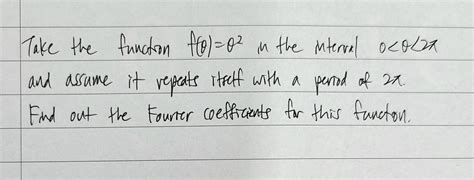 Take the function f(θ)=θ² in the interval 0<θ<2π
and assume it repeats itself with a period of 2π.
Find out the Fourier coefficients for this function.